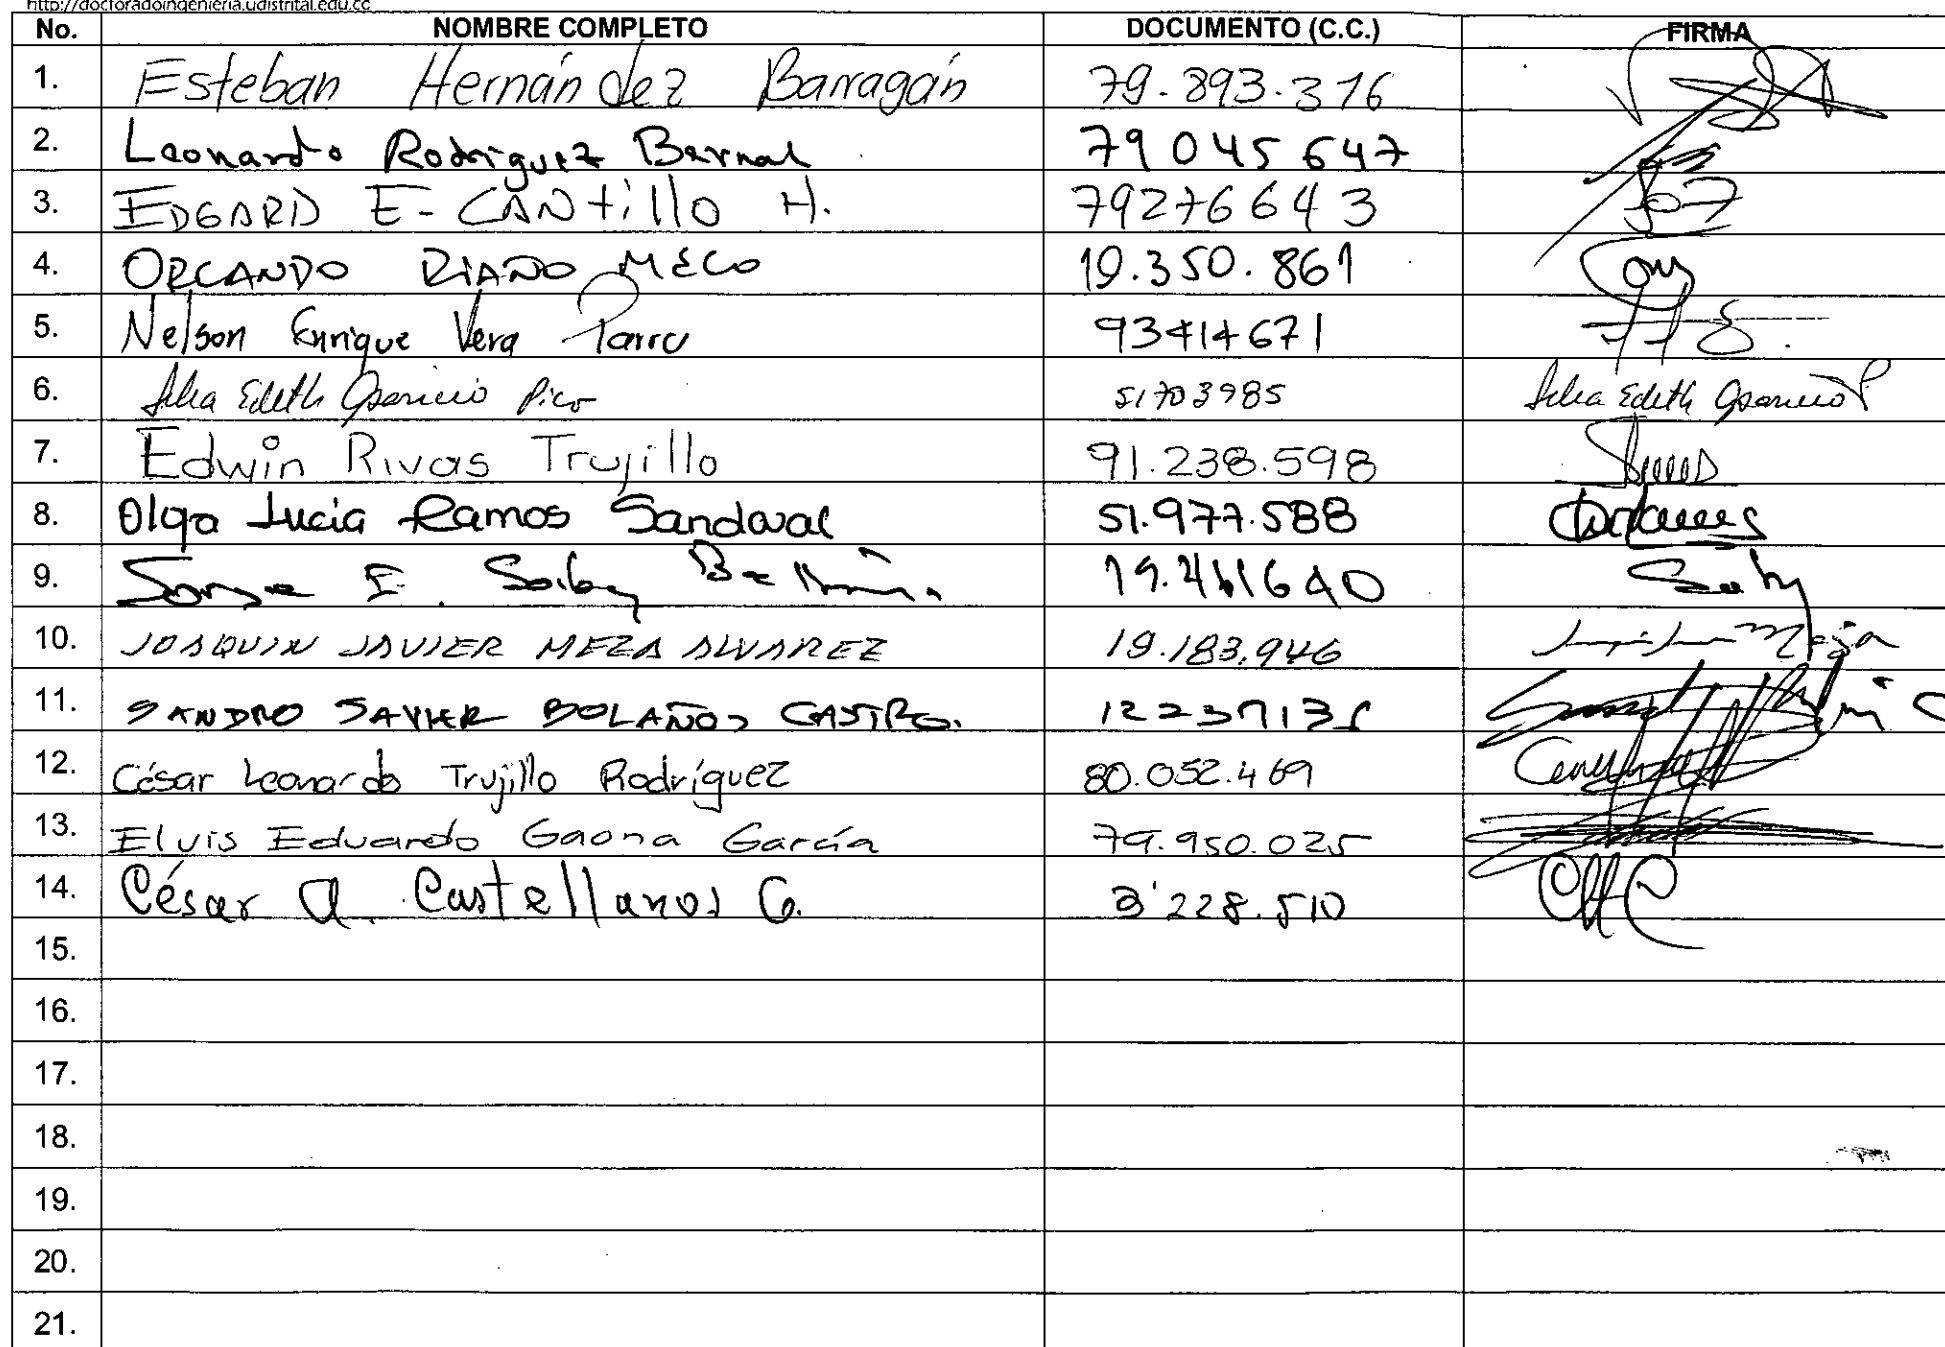 http://doctoradoingenieria.udistrital.edu.co
No. NOMBRE COMPLETO DOCUMENTO (C.C.) FIRMA
1. Esteban Hernández Barragán 79.893.316
2. Leonardo Rodríguez Bernal 79045647
3. EDGARD E. CANtillo H. 79276643
4. ORLANDO RIAÑO MELO 19.350.861
5. Nelson Enrique Vera Parra 93414671
6. Edith Aparicio Pico 51703985 Edith Aparicio P
7. Edwin Rivas Trujillo 91.238.598
8. Olga Lucia Ramos Sandoval 51.977.588
9. E.
10. JOAQUIN JAVIER MEZA ALVAREZ 19.183.946
11. SANDRO JAVIER BOLAÑOS CASTRO.
12. César Leonardo Trujillo Rodríguez 80.052.469
13. Elvis Eduardo Gaona García 79.950.025
14. César A. Castellanos C. 3'228.510
15.
16.
17.
18.
19.
20.
21.